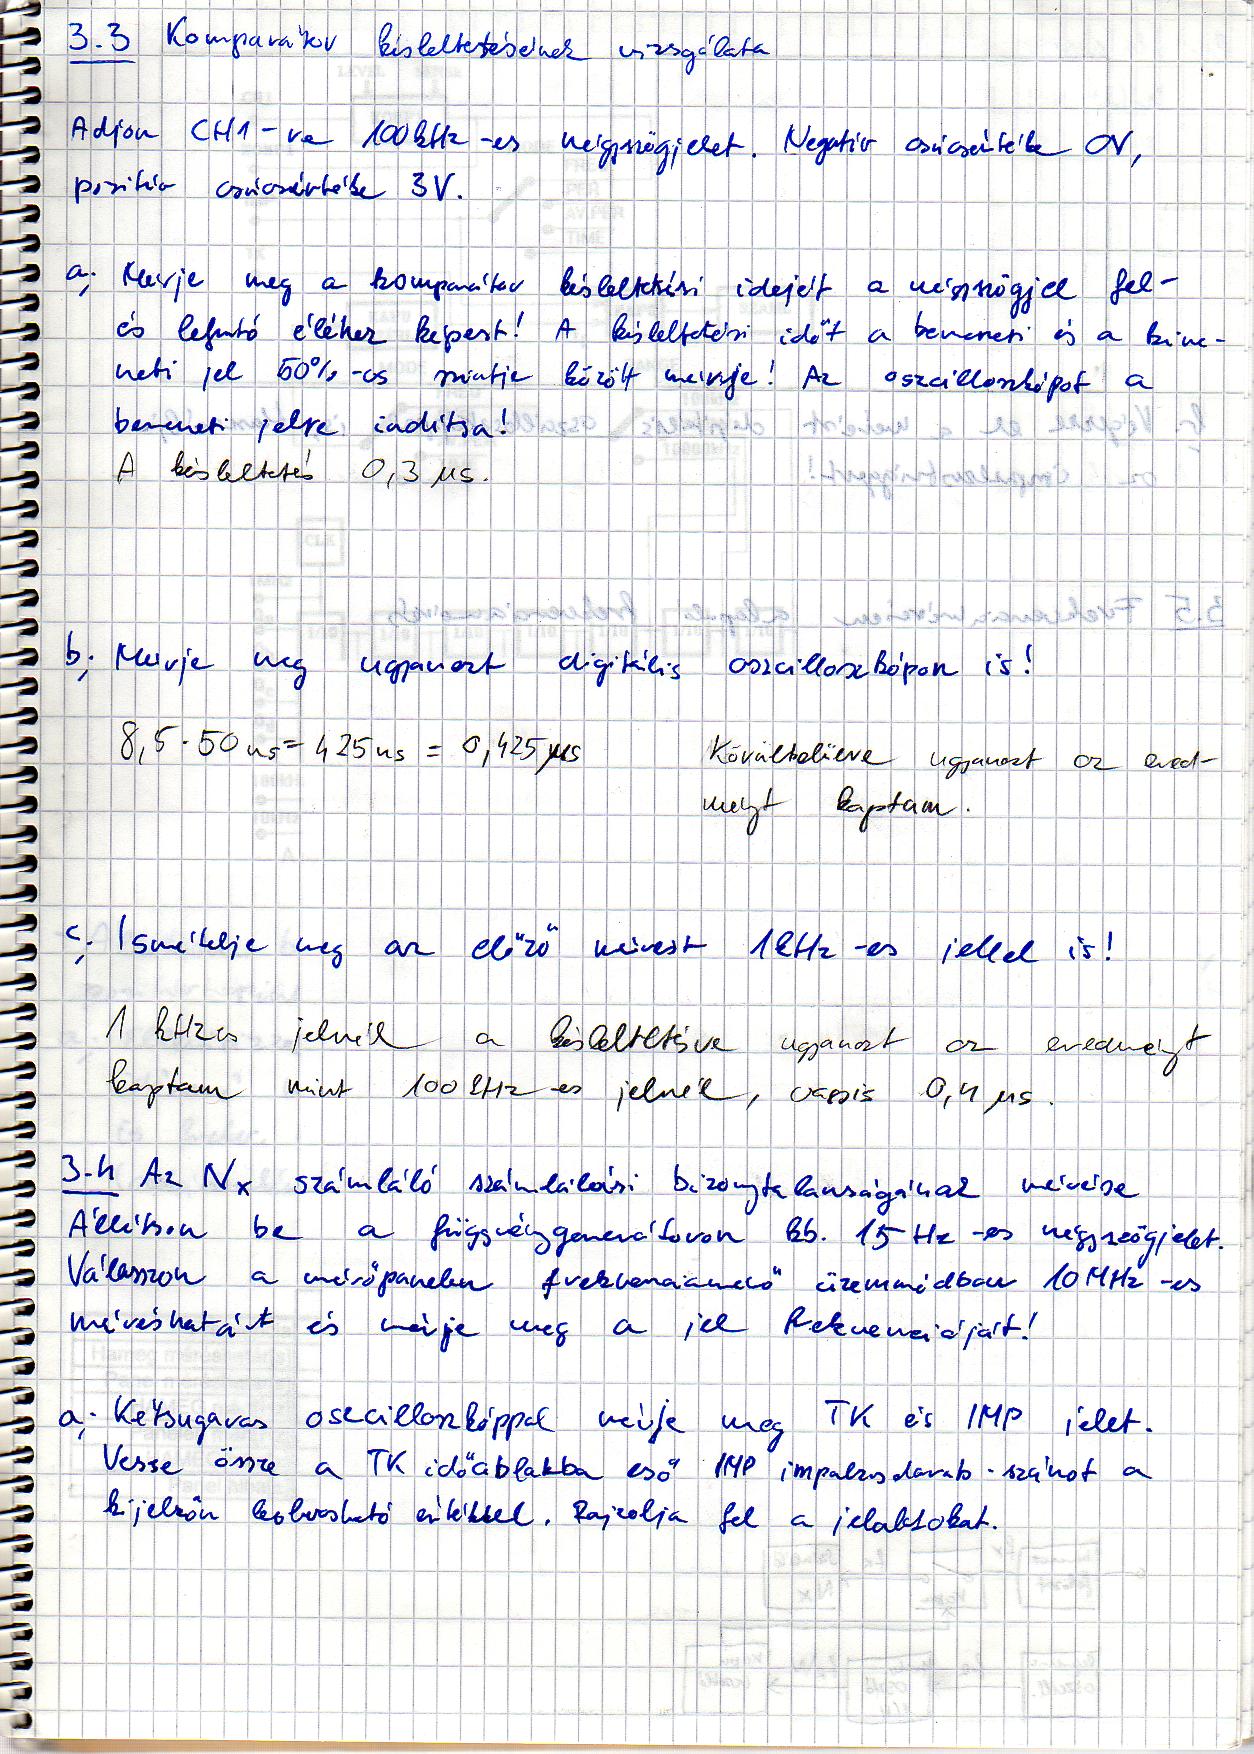 3.3 Komparátor késleltetésének vizsgálata
Adjon CH1-re 100kHz-es négyszögjelet. Negatív csúcsértéke 0V,
pozitív csúcsértéke 3V.
a; Mérje meg a komparátor késleltetési idejét a négyszögjel fel-
és lefutó éléhez képest! A késleltetési időt a bemeneti és a kime-
neti jel 50%-os szintje között mérje! Az oszcilloszkópot a
bemeneti jelre indítsa!
A késleltetés 0,3 µs.
b; Mérje meg ugyanezt digitális oszcilloszkópon is!
8,5·50ns = 425ns = 0,425µs
Körülbelüre ugyanezt az ered-
ményt kaptam.
c; Ismételje meg az előző mérést 1kHz-es jellel is!
1 kHzes jelnél a késleltetésre ugyanezt az eredményt
kaptam mint 100kHz-es jelnél, vagyis 0,4 µs.
3.4 Az Nx számláló számlálási bizonytalanságának mérése
Állítson be a függvénygenerátoron kb. 15Hz-es négyszögjelet.
Válasszon a mérőpanelen frekvenciamérő üzemmódban 10MHz-es
méréshatárt és mérje meg a jel frekvenciáját!
a; Kétsugaras oszcilloszkóppal mérje meg TK és IMP jelet.
Vesse össze a TK időablakba eső IMP impulzusdarab-számot a
kijelzőn leolvasható értékkel. Rajzolja fel a jelalakokat.